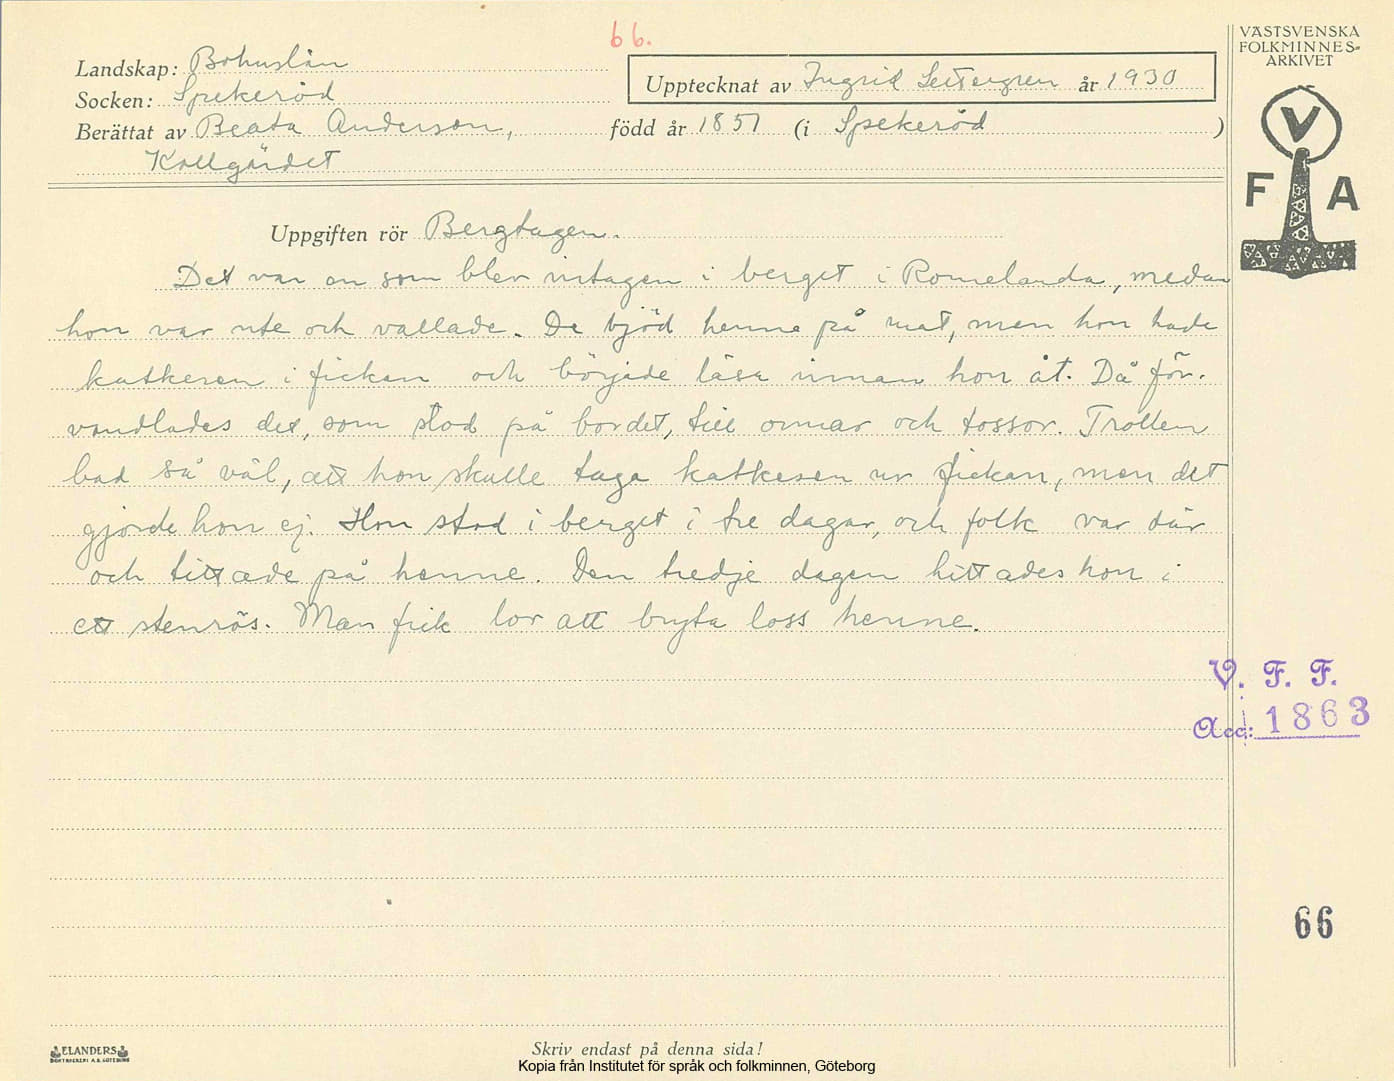 66.
VÄSTSVENSKA
FOLKMINNES-
ARKIVET
Landskap: Bohuslän
Upptecknat av Ingrid Settergren år 1930
Socken: Spekeröd
Berättat av Beata Anderson, född år 1851 (i Spekeröd)
Kollgärdet
V
F A
Uppgiften rör Bergtagen.
Det var en som blev intagen i berget i Romelanda, medan
hon var ute och vallade. De bjöd henne på mat, men hon hade
katkesen i fickan och började läsa innan hon åt. Då för-
vandlades det, som stod på bordet, till ormar och tossor. Trollen
bad så väl, att hon skulle taga katkesen ur fickan, men det
gjorde hon ej. Hon stod i berget i tre dagar, och folk var där
och tittade på henne. Den tredje dagen hittades hon i
ett stenrös. Man fick lov att bryta loss henne.
V. F. F.
Acc: 1863
66
ELANDERS
BOKTRYCKERI A.B. GÖTEBORG
Skriv endast på denna sida!
Kopia från Institutet för språk och folkminnen, Göteborg